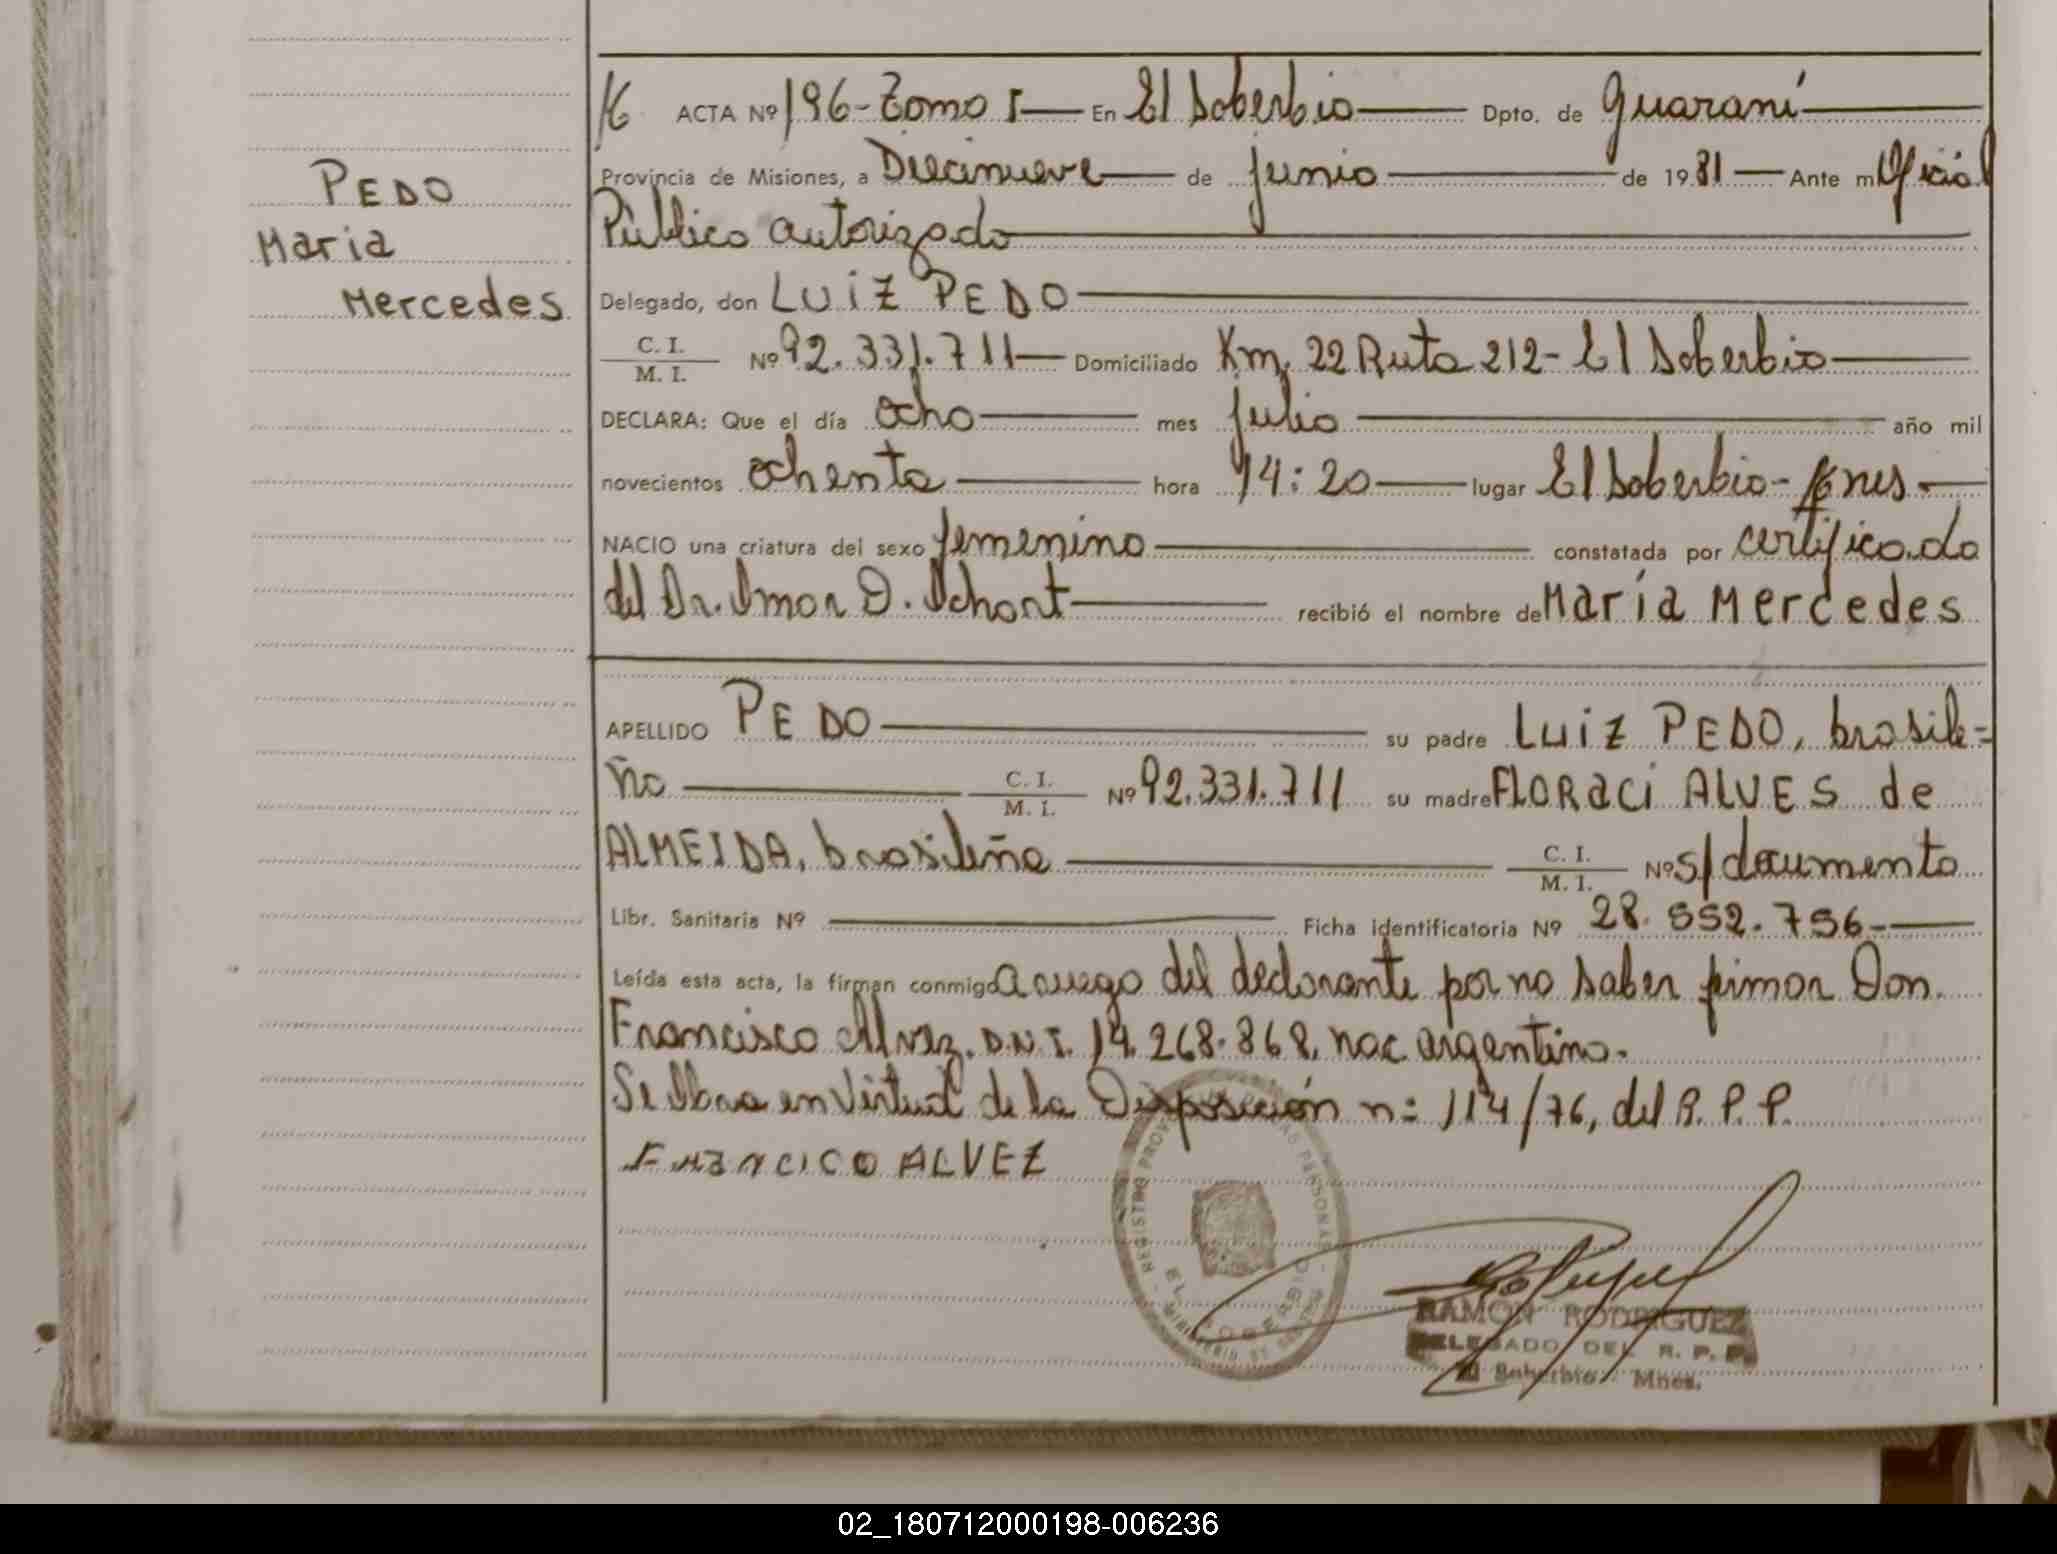 PEDO
Maria
Mercedes
ACTA Nº 196-Tomo I En El Soberbio Dpto. de Guaraní
Provincia de Misiones, a Diecinueve de junio de 1981 Ante mí Oficial
Público autorizado
Delegado, don LUIZ PEDO
C. I.
M. I. Nº 92.331.711 Domiciliado Km. 22 Ruta 212- El Soberbio
DECLARA: Que el día ocho mes julio año mil
novecientos ochenta hora 14:20 lugar El Soberbio-Mnes.
NACIO una criatura del sexo femenino constatada por certificado
del Dr. Omar D. Schont recibió el nombre de María Mercedes
APELLIDO PEDO su padre LUIZ PEDO, brasile=
ño C. I.
M. I. Nº 92.331.711 su madre FLORACI ALVES de
ALMEIDA, brasileña C. I.
M. I. Nº s/documento
Libr. Sanitaria Nº Ficha identificatoria Nº 28.552.756-
Leída esta acta, la firman conmigo a ruego del declarante por no saber firmar Don.
Francisco Alvez. D.N.I. 14.268.868, nac argentino.
Se labra en Virtud de la Disposición n: 114/76, del R. P. P.
FRANCICO ALVEZ
REGISTRO PROV PERSONAS
EL SOBERBIO
RAMON RODRIGUEZ
DELEGADO DEL R. P. P.
El Soberbio - Mnes.
02_180712000198-006236